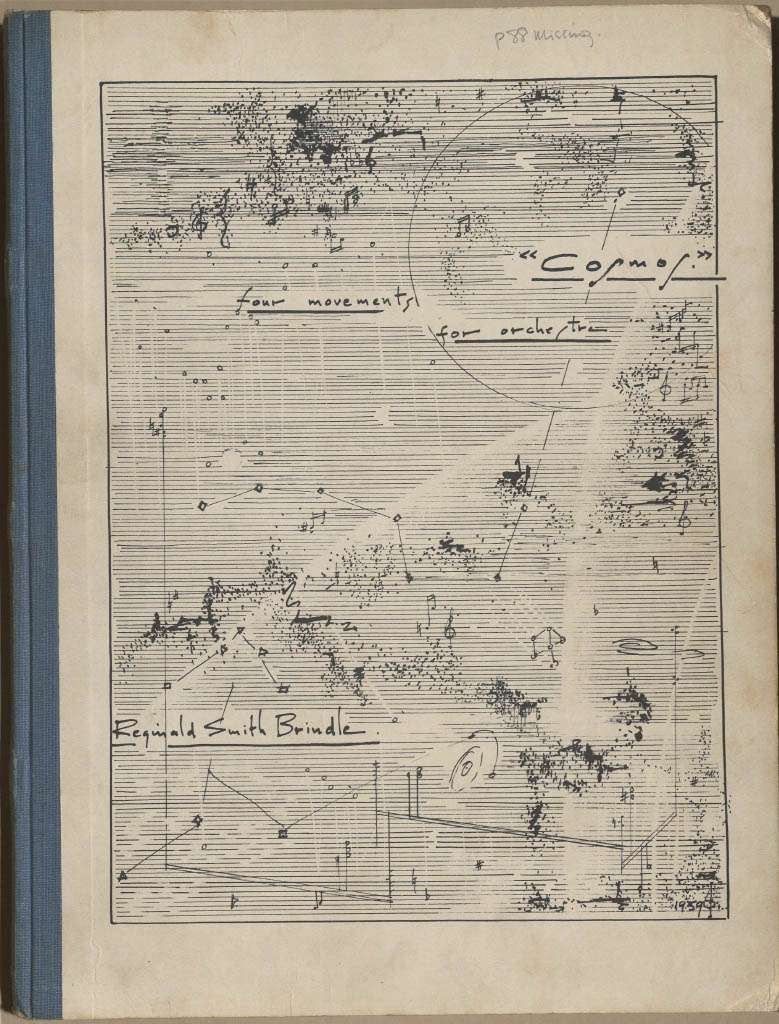 p 88 missing.
"Cosmos."
four movements
for orchestra
Reginald Smith Brindle.
1959